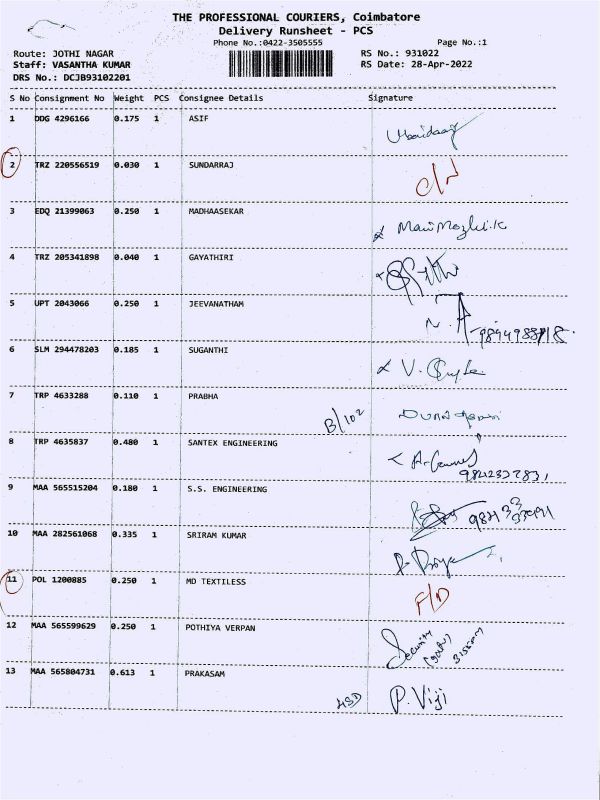 THE PROFESSIONAL COURIERS, Coimbatore
Delivery Runsheet - PCS
Phone No.:0422-3505555 Page No.:1
Route: JOTHI NAGAR RS No.: 931022
Staff: VASANTHA KUMAR RS Date: 28-Apr-2022
DRS No.: DCJB93102201
S No Consignment No Weight PCS Consignee Details Signature
1 DDG 4296166 0.175 1 ASIF
2 TRZ 220556519 0.030 1 SUNDARRAJ
3 EDQ 21399063 0.250 1 MADHAASEKAR
4 TRZ 205341898 0.040 1 GAYATHIRI
5 UPT 2043066 0.250 1 JEEVANATHAM
6 SLM 294478203 0.185 1 SUGANTHI
7 TRP 4633288 0.110 1 PRABHA B/102
8 TRP 4635837 0.480 1 SANTEX ENGINEERING
9 MAA 565515204 0.180 1 S.S. ENGINEERING
10 MAA 282561068 0.335 1 SRIRAM KUMAR
11 POL 1200885 0.250 1 MD TEXTILESS F/D
12 MAA 565599629 0.250 1 POTHIYA VERPAN Security
13 MAA 565804731 0.613 1 PRAKASAM P. Viji